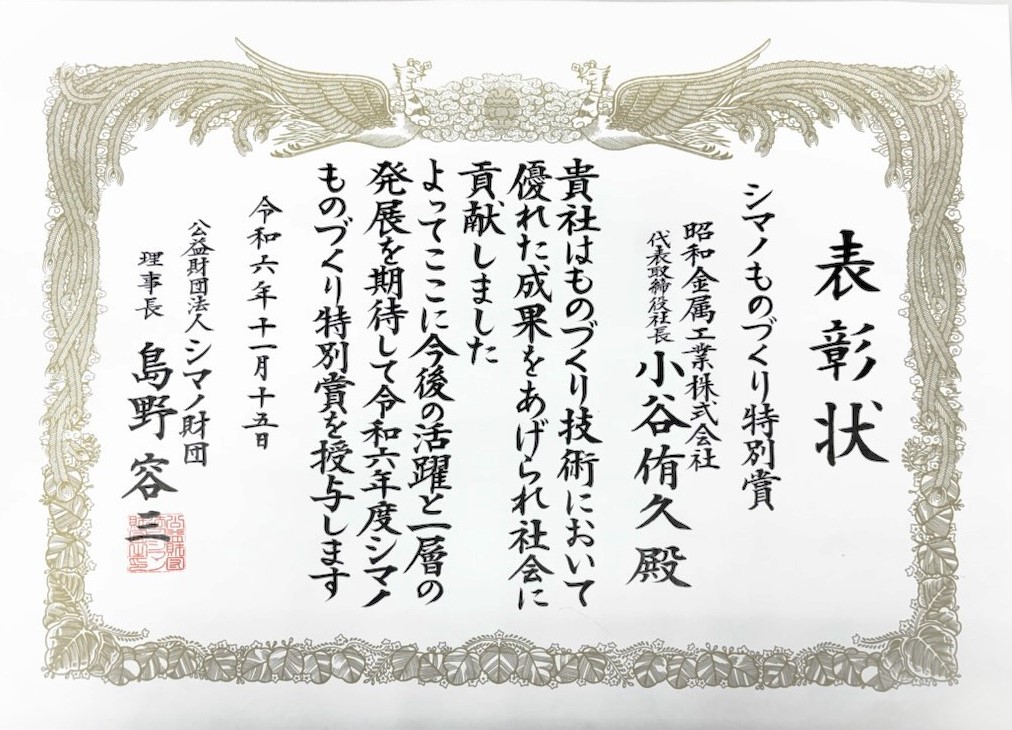 表彰状
シマノものづくり特別賞
昭和金属工業株式会社
代表取締役社長 小谷侑久 殿
貴社はものづくり技術において
優れた成果をあげられ社会に
貢献しました
よってここに今後の活躍と一層の
発展を期待して令和六年度シマノ
ものづくり特別賞を授与します
令和六年十一月十五日
公益財団法人シマノ財団
理事長 島野容三